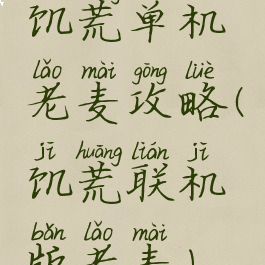 饥荒单机
lǎo mài gōng lüè
老麦攻略(
jī huāng lián jī
饥荒联机
bǎn lǎo mài
版老麦)